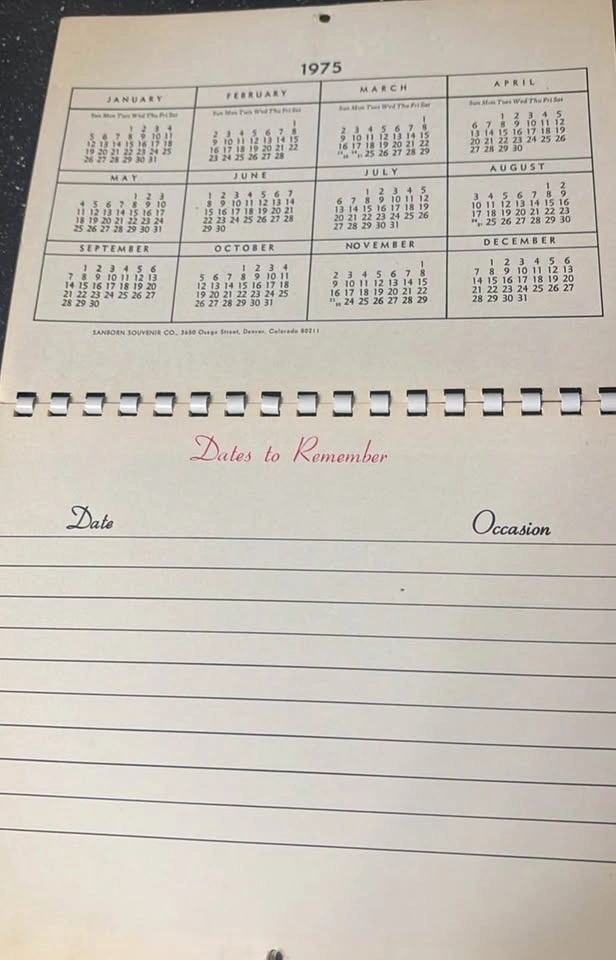 1975
JANUARY FEBRUARY MARCH APRIL
Sun Mon Tues Wed Thu Fri Sat Sun Mon Tues Wed Thu Fri Sat Sun Mon Tues Wed Thu Fri Sat Sun Mon Tues Wed Thu Fri Sat
1 2 3 4 1 1 1 2 3 4 5
5 6 7 8 9 10 11 2 3 4 5 6 7 8 2 3 4 5 6 7 8 6 7 8 9 10 11 12
12 13 14 15 16 17 18 9 10 11 12 13 14 15 9 10 11 12 13 14 15 13 14 15 16 17 18 19
19 20 21 22 23 24 25 16 17 18 19 20 21 22 16 17 18 19 20 21 22 20 21 22 23 24 25 26
26 27 28 29 30 31 23 24 25 26 27 28 25 26 27 28 29 27 28 29 30
MAY JUNE JULY AUGUST
1 2 3 1 2 3 4 5 6 7 1 2 3 4 5 1 2
4 5 6 7 8 9 10 8 9 10 11 12 13 14 6 7 8 9 10 11 12 3 4 5 6 7 8 9
11 12 13 14 15 16 17 15 16 17 18 19 20 21 13 14 15 16 17 18 19 10 11 12 13 14 15 16
18 19 20 21 22 23 24 22 23 24 25 26 27 28 20 21 22 23 24 25 26 17 18 19 20 21 22 23
25 26 27 28 29 30 31 29 30 27 28 29 30 31 25 26 27 28 29 30
SEPTEMBER OCTOBER NOVEMBER DECEMBER
1 2 3 4 5 6 1 2 3 4 1 1 2 3 4 5 6
7 8 9 10 11 12 13 5 6 7 8 9 10 11 2 3 4 5 6 7 8 7 8 9 10 11 12 13
14 15 16 17 18 19 20 12 13 14 15 16 17 18 9 10 11 12 13 14 15 14 15 16 17 18 19 20
21 22 23 24 25 26 27 19 20 21 22 23 24 25 16 17 18 19 20 21 22 21 22 23 24 25 26 27
28 29 30 26 27 28 29 30 31 24 25 26 27 28 29 28 29 30 31
SANBORN SOUVENIR CO., 3650 Osage Street, Denver, Colorado 80211
Dates to Remember
Date Occasion